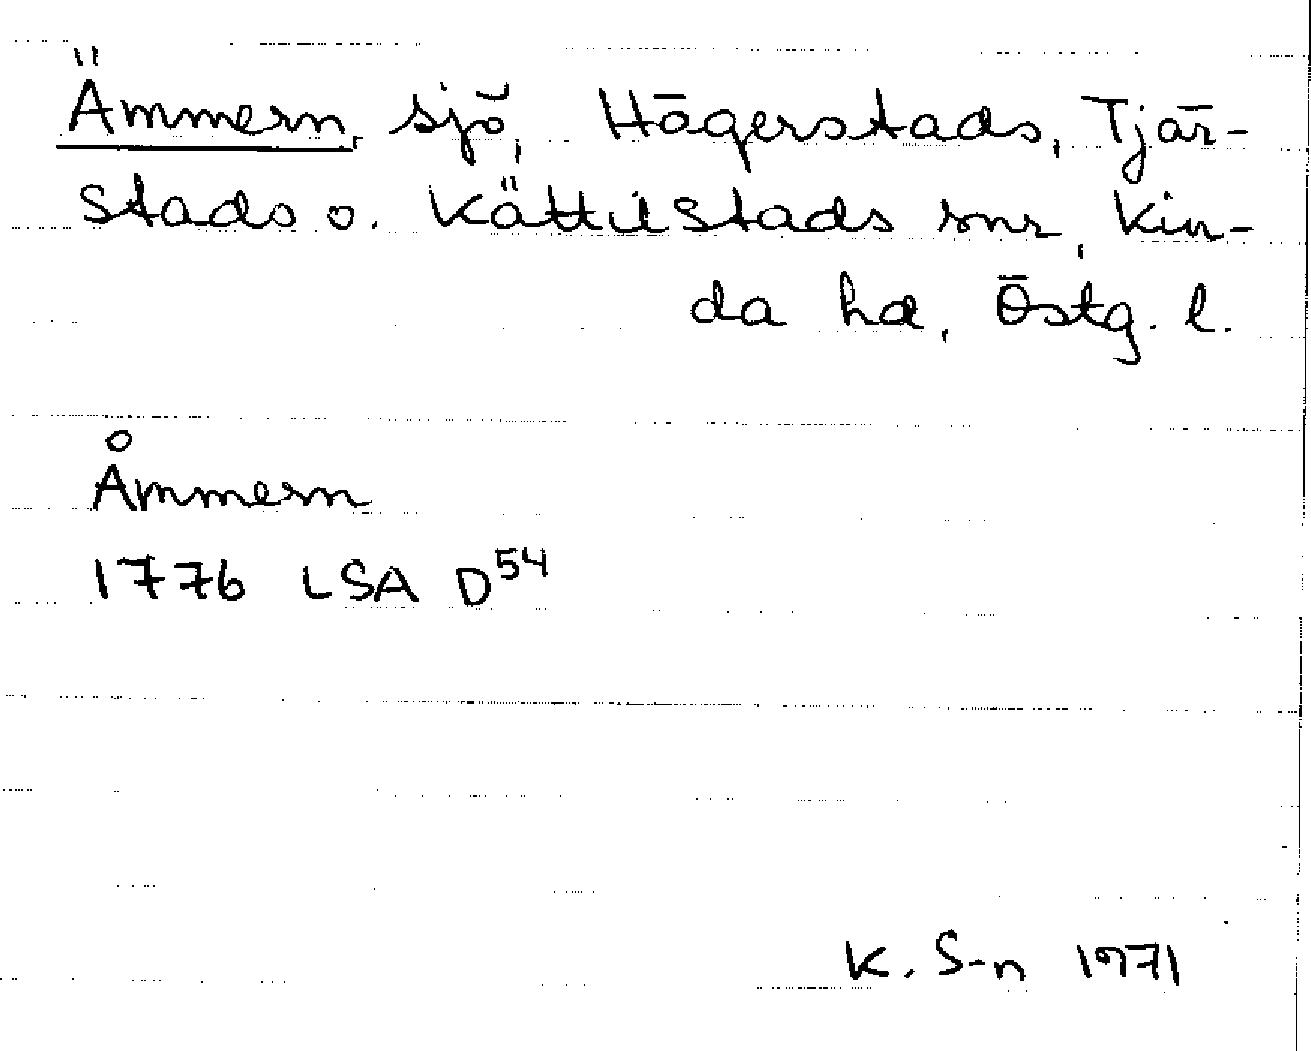 Ämmern, sjö, Hägerstads, Tjär-
stads o. Kättilstads snr, Kin-
da hd, Östg. l.
Åmmern
1776 LSA D54
K. S-n 1971